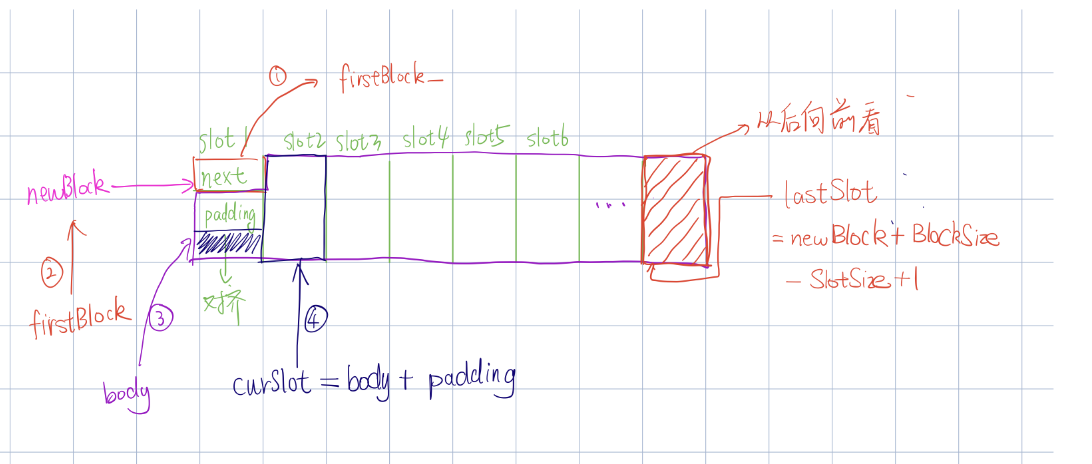 ① firstBlock_
从后向前看
slot1 slot2 slot3 slot4 slot5 slot6
newBlock
next
padding
...
lastSlot
= newBlock + BlockSize
- SlotSize + 1
②
firstBlock
对齐
③
④
body
curSlot = body + padding